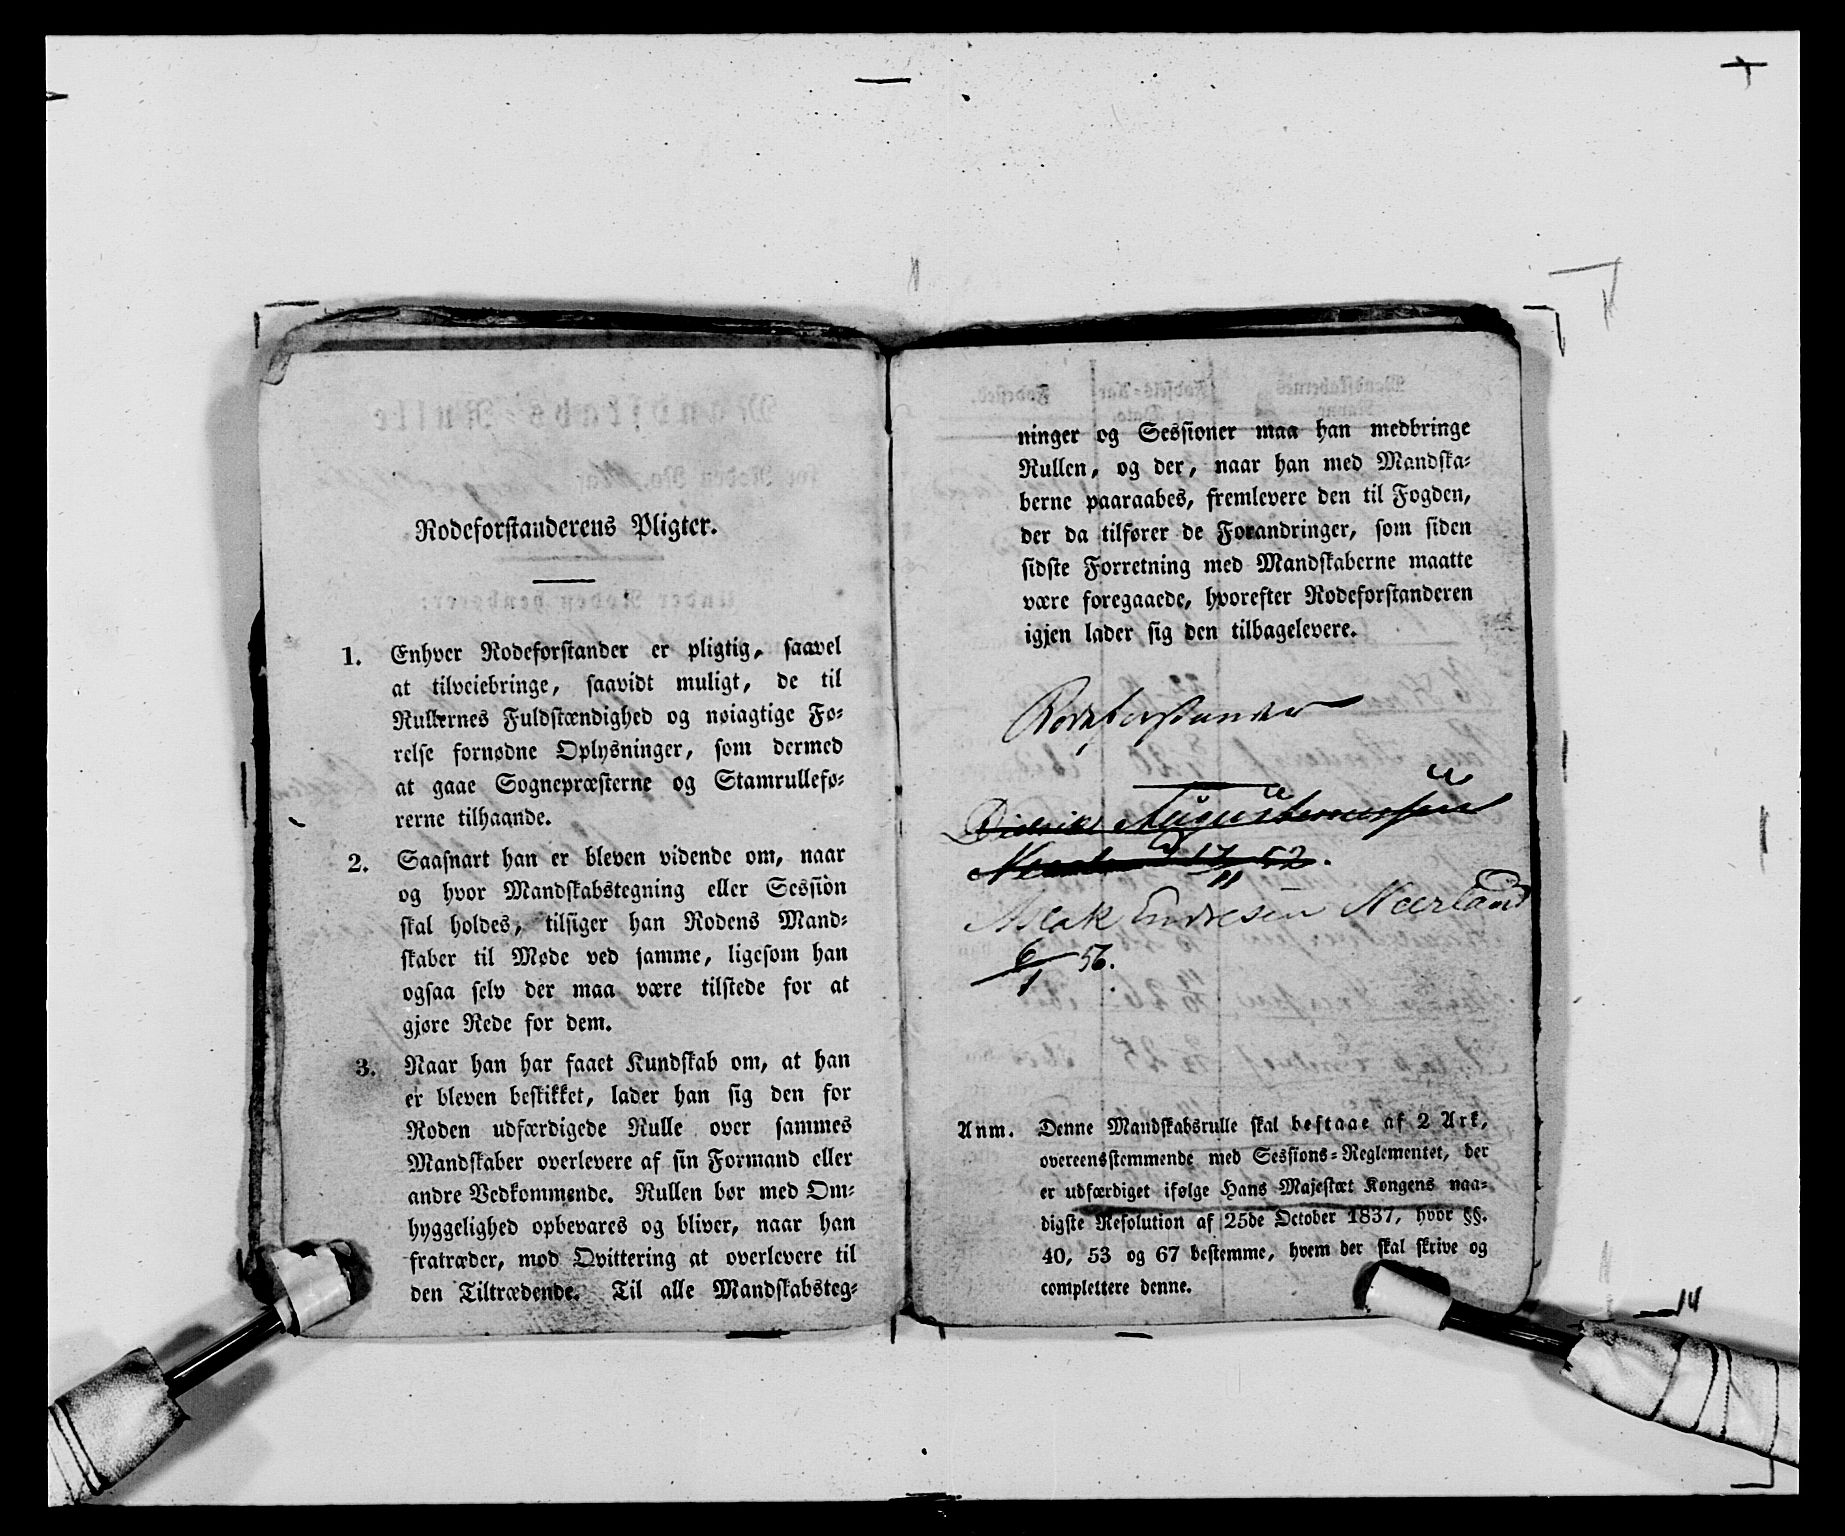 Rodeforstanderens Pligter.
1. Enhver Rodeforstander er pligtig, saavel
at tilveiebringe, saavidt muligt, de til
Rullernes Fuldstændighed og nøiagtige Fø-
relse fornødne Oplysninger, som dermed
at gaae Sognepræsterne og Stamrullefø-
rerne tilhaande.
2. Saasnart han er bleven vidende om, naar
og hvor Mandskabstegning eller Session
skal holdes, tilsiger han Rodens Mand-
skaber til Møde ved samme, ligesom han
ogsaa selv der maa være tilstede for at
gjøre Rede for dem.
3. Naar han har faaet Kundskab om, at han
er bleven beskikket, lader han sig den for
Roden udfærdigede Rulle over sammes
Mandskaber overlevere af sin Formand eller
andre Vedkommende. Rullen bør med Om-
hyggelighed opbevares og bliver, naar han
fratræder, mod Qvittering at overlevere til
den Tiltrædende. Til alle Mandskabsteg-
ninger og Sessioner maa han medbringe
Rullen, og der, naar han med Mandska-
berne paaraabes, fremlevere den til Fogden,
der da tilfører de Forandringer, som siden
sidste Forretning med Mandskaberne maatte
være foregaaede, hvorefter Rodeforstanderen
igjen lader sig den tilbagelevere.
Rodeforstander
Didrik Augustinussen
17/11 52.
Aslak Endresen Neerland
6/1 56.
Anm. Denne Mandskabsrulle skal bestaae af 2 Ark,
overeensstemmende med Sessions-Reglementet, der
er udfærdiget ifølge Hans Majestæt Kongens naa-
digste Resolution af 25de October 1837, hvor §§.
40, 53 og 67 bestemme, hvem der skal skrive og
complettere denne.
14